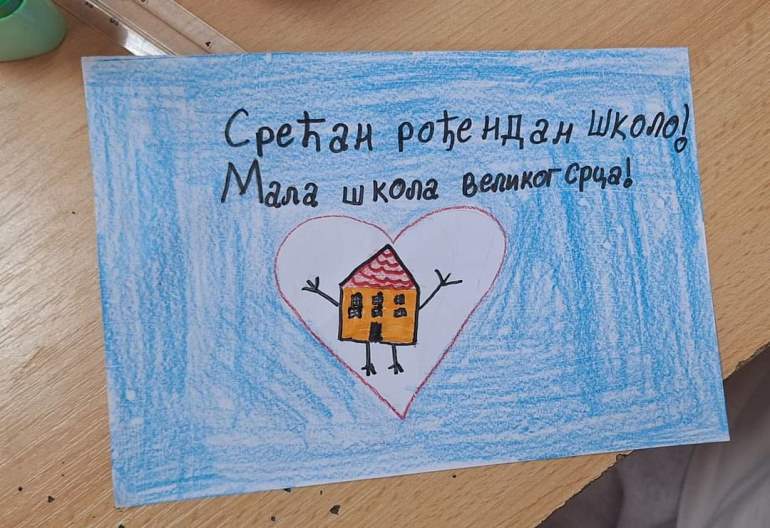 Срећан рођендан школо!
Мала школа великог срца!